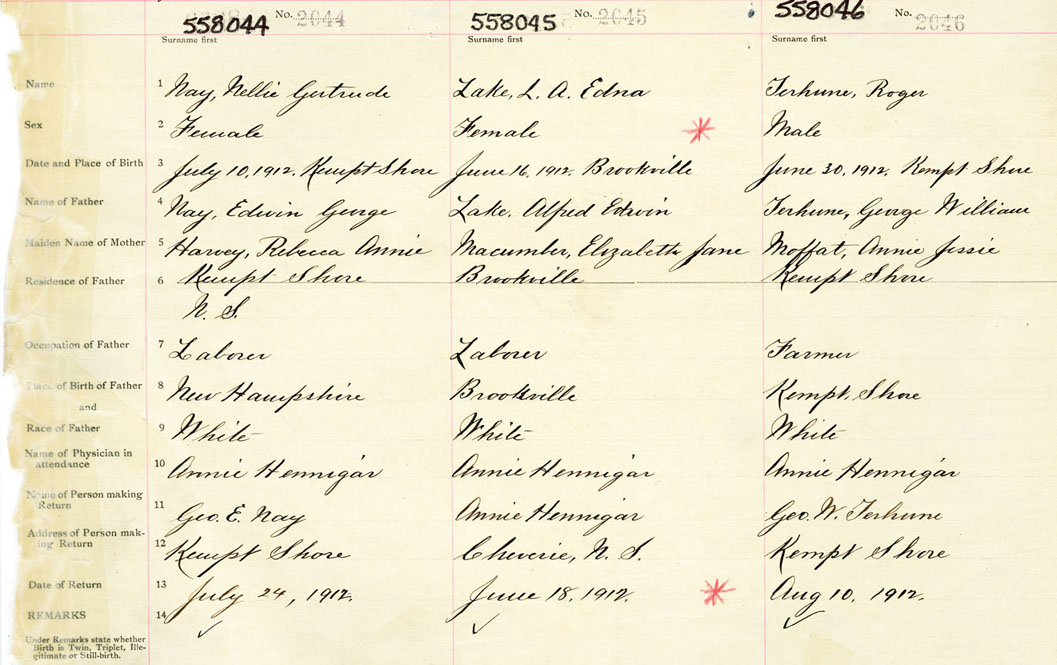 558044 No. 2044 558045 No. 2045 558046 No. 2046
Surname first Surname first Surname first
Name 1 Nay, Nellie Gertrude Lake, L. A. Edna Terhune, Roger
Sex 2 Female Female Male
Date and Place of Birth 3 July 10, 1912, Kempt Shore June 16, 1912. Brookville June 30, 1912, Kempt Shore
Name of Father 4 Nay, Edwin George Lake, Alfred Edwin Terhune, George William
Maiden Name of Mother 5 Harvey, Rebecca Annie Macumber, Elizabeth Jane Moffat, Annie Jessie
Residence of Father 6 Kempt Shore Brookville Kempt Shore
N. S.
Occupation of Father 7 Laborer Laborer Farmer
Place of Birth of Father 8 New Hampshire Brookville Kempt Shore
and
Race of Father 9 White White White
Name of Physician in
attendance 10 Annie Hennigar Annie Hennigar Annie Hennigar
Name of Person making
Return 11 Geo. E. Nay Annie Hennigar Geo. W. Terhune
Address of Person mak-
ing Return 12 Kempt Shore Cheverie, N. S. Kempt Shore
Date of Return 13 July 24, 1912. June 18, 1912. Aug 10, 1912.
REMARKS 14
Under Remarks state whether
Birth is Twin, Triplet, Ille-
gitimate or Still-birth.